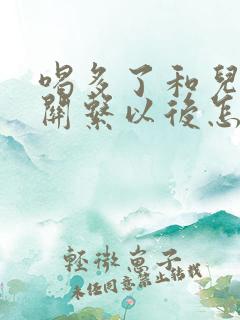 喝多了和兒
關繫以後怎
輕微崽子
未經同意禁止轉載